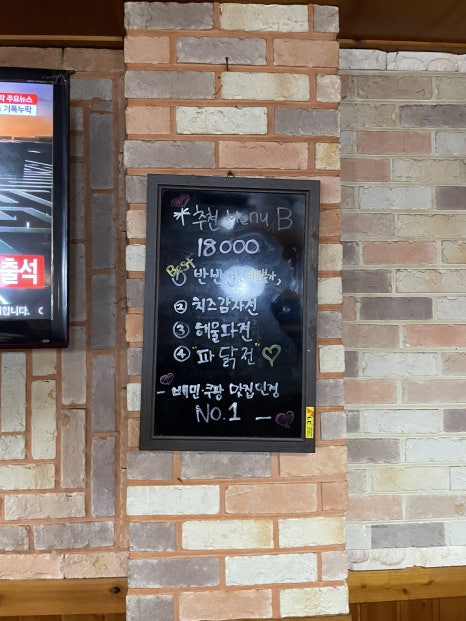 주요뉴스
기록누락
출석
니다.
*추천 Menu B
18000
Best
① 반반
② 치즈감자전
③ 해물파전
④ "파닭전"
- 배민·쿠팡 맛집인정
NO.1 -